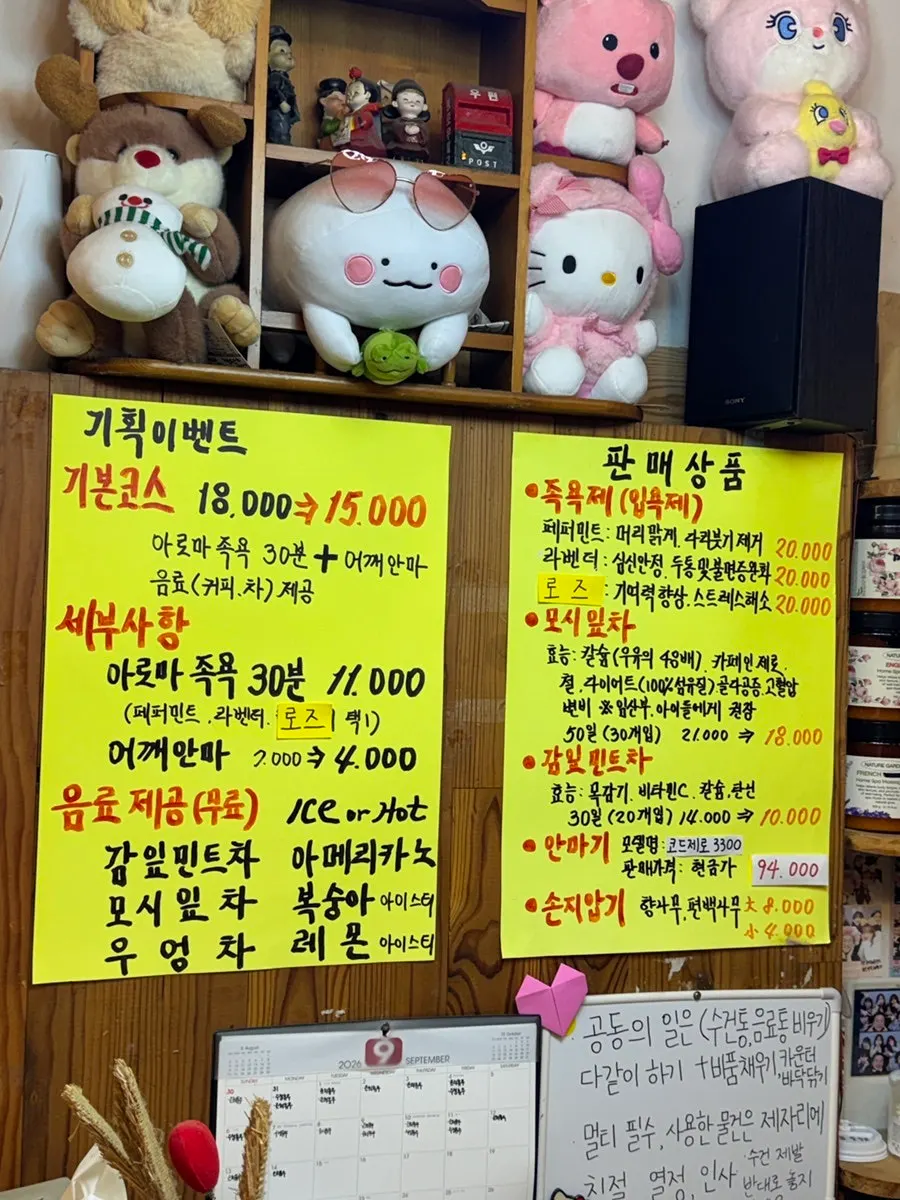 우편
POST
SONY
기획이벤트
기본코스 18,000⇒15.000
아로마 족욕 30분 + 어깨안마
음료(커피.차) 제공
세부사항
아로마 족욕 30분 11.000
(페퍼민트, 라벤더. 로즈 택1)
어깨안마 7.000⇒4.000
음료 제공(무료) ICE or Hot
감잎민트차 아메리카노
모시잎차 복숭아 아이스티
우엉차 레몬 아이스티
판매상품
• 족욕제 (입욕제)
페퍼민트: 머리맑게, 다리붓기 제거 20.000
라벤더: 심신안정, 두통및불면증완화 20.000
로즈 : 기억력 향상, 스트레스해소 20.000
• 모시잎차
효능: 칼슘(우유의 48배), 카페인 제로,
철, 다이어트(100%섬유질) 골다공증, 고혈압
변비 ※임산부, 아이들에게 권장
50일 (30개입) 21.000 ⇒ 18.000
• 감잎민트차
효능: 목감기, 비타민C, 칼슘, 탄닌
30일 (20개입) 14.000 ⇒ 10.000
• 안마기 모델명: 코드제로 3300
판매가격: 현금가 94.000
• 손지압기 향나무, 편백나무 大 8.000
小 4.000
NATURE GARDEN
FRENCH
Home Spa
8 August
2026 9 SEPTEMBER
10 October
SUNDAY MONDAY TUESDAY
30 31 1 2 3 4 5
공동의 일은 (수건통,음료통 비우기)
다같이 하기 + 비품채우기, 카운터
바닥닦기
멀티 필수, 사용한 물건은 제자리에
친절 열정 인사 수건 제발
반대로 놓지